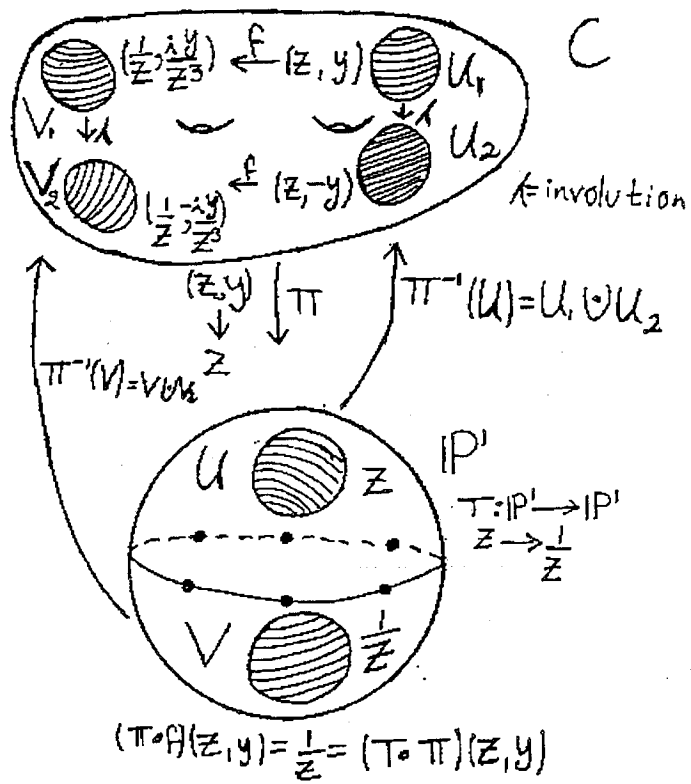 C
(1/z, iy/z³) ←f (z, y) U₁
V₁ ↓λ ↓λ
V₂ U₂
(1/z, -iy/z³) ←f (z, -y)
λ = involution
(z, y) ↓ z
π
π⁻¹(U) = U₁ ⊍ U₂
π⁻¹(V) = V₁ ⊍ V₂
U z
ℙ¹
T: ℙ¹ → ℙ¹
z → 1/z
V 1/z
(π∘f)(z, y) = 1/z = (T∘π)(z, y)